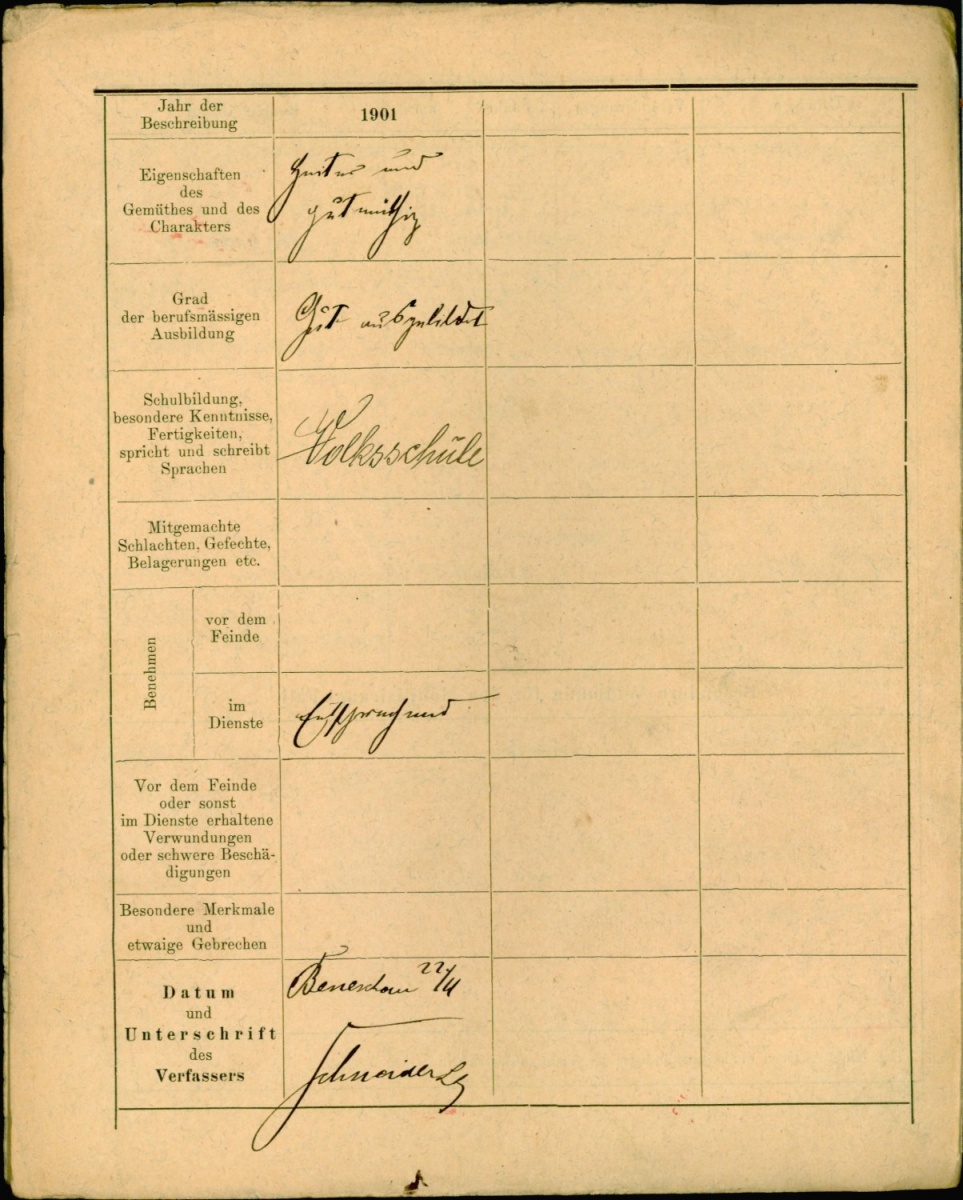 Jahr der
Beschreibung
1901
Eigenschaften
des
Gemüthes und des
Charakters
und
gutmüthig
Grad
der berufsmässigen
Ausbildung
Gut ausgebildet
Schulbildung,
besondere Kenntnisse,
Fertigkeiten,
spricht und schreibt
Sprachen
Volksschule
Mitgemachte
Schlachten, Gefechte,
Belagerungen etc.
Benehmen
vor dem
Feinde
im
Dienste
Entsprechend
Vor dem Feinde
oder sonst
im Dienste erhaltene
Verwundungen
oder schwere Beschä-
digungen
Besondere Merkmale
und
etwaige Gebrechen
Datum
und
Unterschrift
des
Verfassers
Beneschau
Schneider